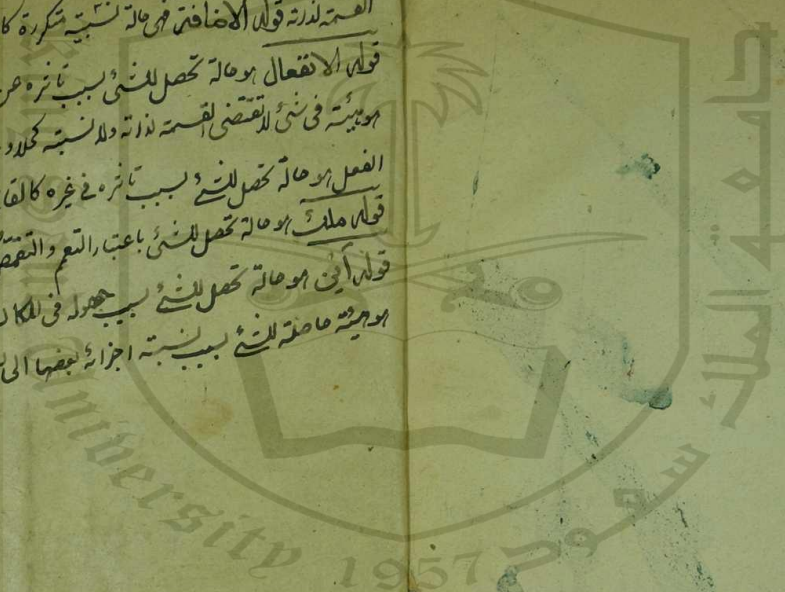 القسمة لذاته قوله الاضافة هى حالة نسبية متكررة كا
قوله الانفعال هو حالة تحصل للشئ بسبب تاثره عن
هو هيئة فى شئ لا تقتضى القسمة لذاته ولا نسبة كحلاو
الفعل هو حالة تحصل للشئ بسبب تاثره فى غيره كالقا
قوله ملك هو حالة تحصل للشئ باعتبار التعمم والتقمص
قوله أين هو حالة تحصل للشئ بسبب حصوله فى المكان
هو هيئة حاصلة للشئ بسبب نسبة اجزائه بعضها الى
جامعة الملك سعود
University
1957